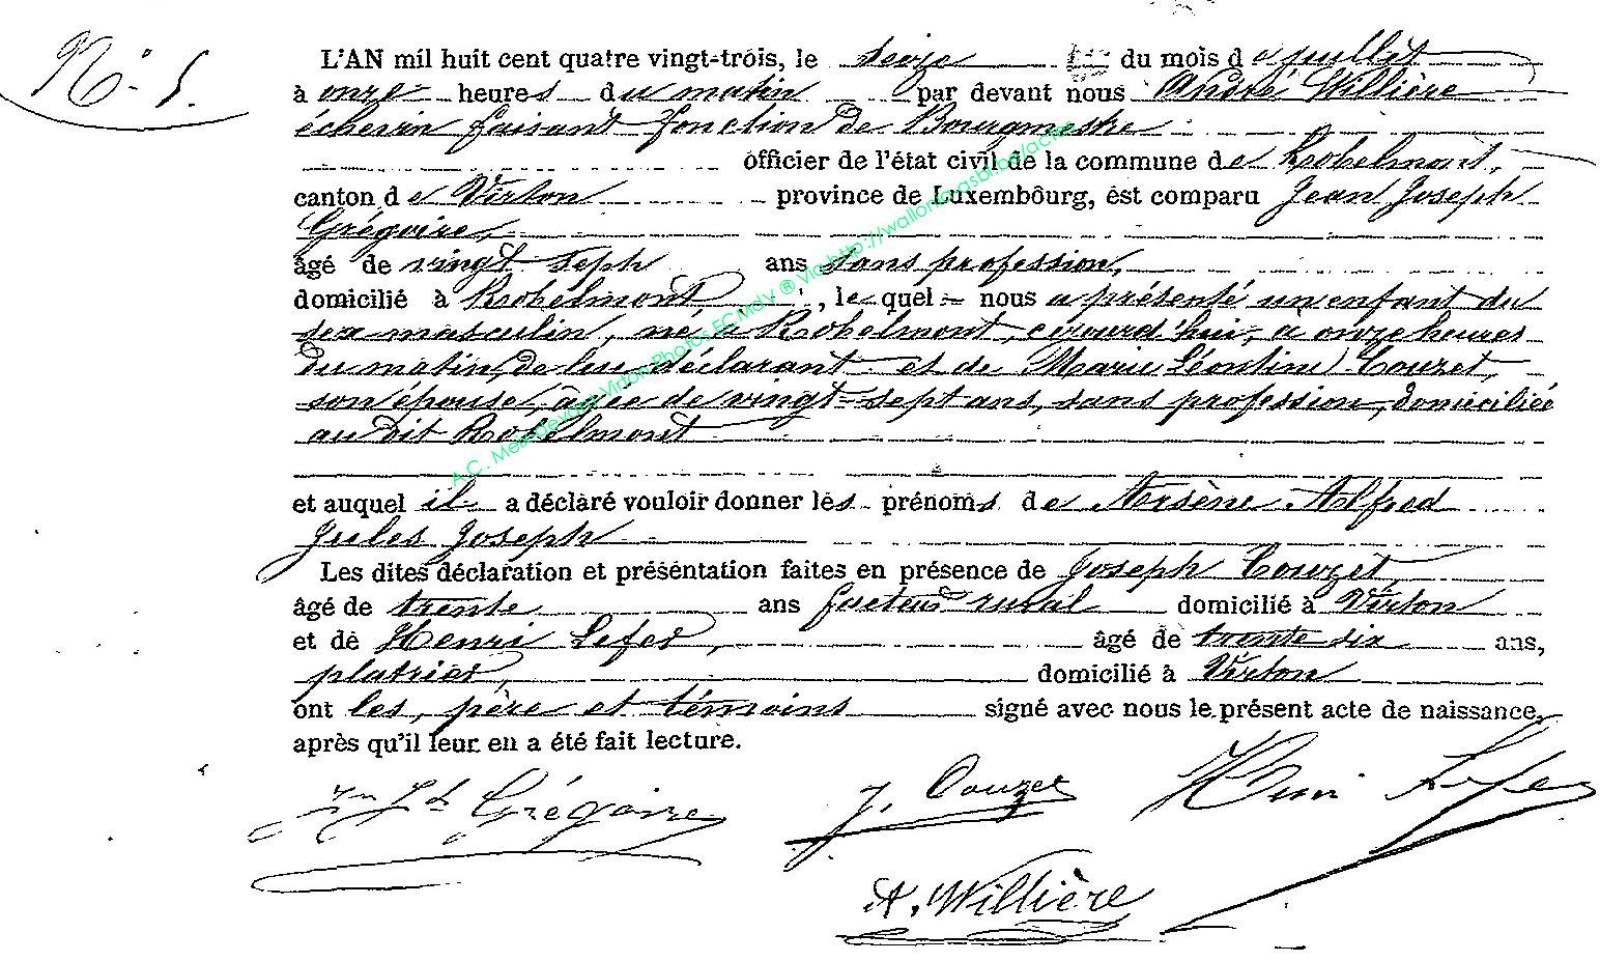 N° 5.
L'AN mil huit cent quatre vingt-trois, le seize du mois de juillet
à onze heures du matin par devant nous André Willière
échevin faisant fonction de Bourgmestre
officier de l'état civil de la commune de Robelmont,
canton de Virton province de Luxembourg, est comparu Jean Joseph
Grégoire,
âgé de vingt seph ans sans profession,
domicilié à Robelmont, le quel nous a présenté un enfant du
sex masculin, né à Robelmont, cejourd'hui, à onze heures
du matin, de lui déclarant et de Marie Léontine Couzet,
son épouse, âgée de vingt-sept ans, sans profession, domiciliée
au dit Robelmont
et auquel il a déclaré vouloir donner les prénoms de Arsène Alfred
Jules Joseph
Les dites déclaration et présentation faites en présence de Joseph Couzet,
âgé de trente ans facteur rural domicilié à Virton
et de Henri Lefer, âgé de trente six ans,
platrier, domicilié à Virton
ont les, père et témoins signé avec nous le présent acte de naissance,
après qu'il leur en a été fait lecture.
Jn Jh Grégoire J. Couzet Henri Lefer
A. Willière
A.C. Meix-devant-Virton Photos ECMdV ® Via http://wallonia-asbl.be/actes